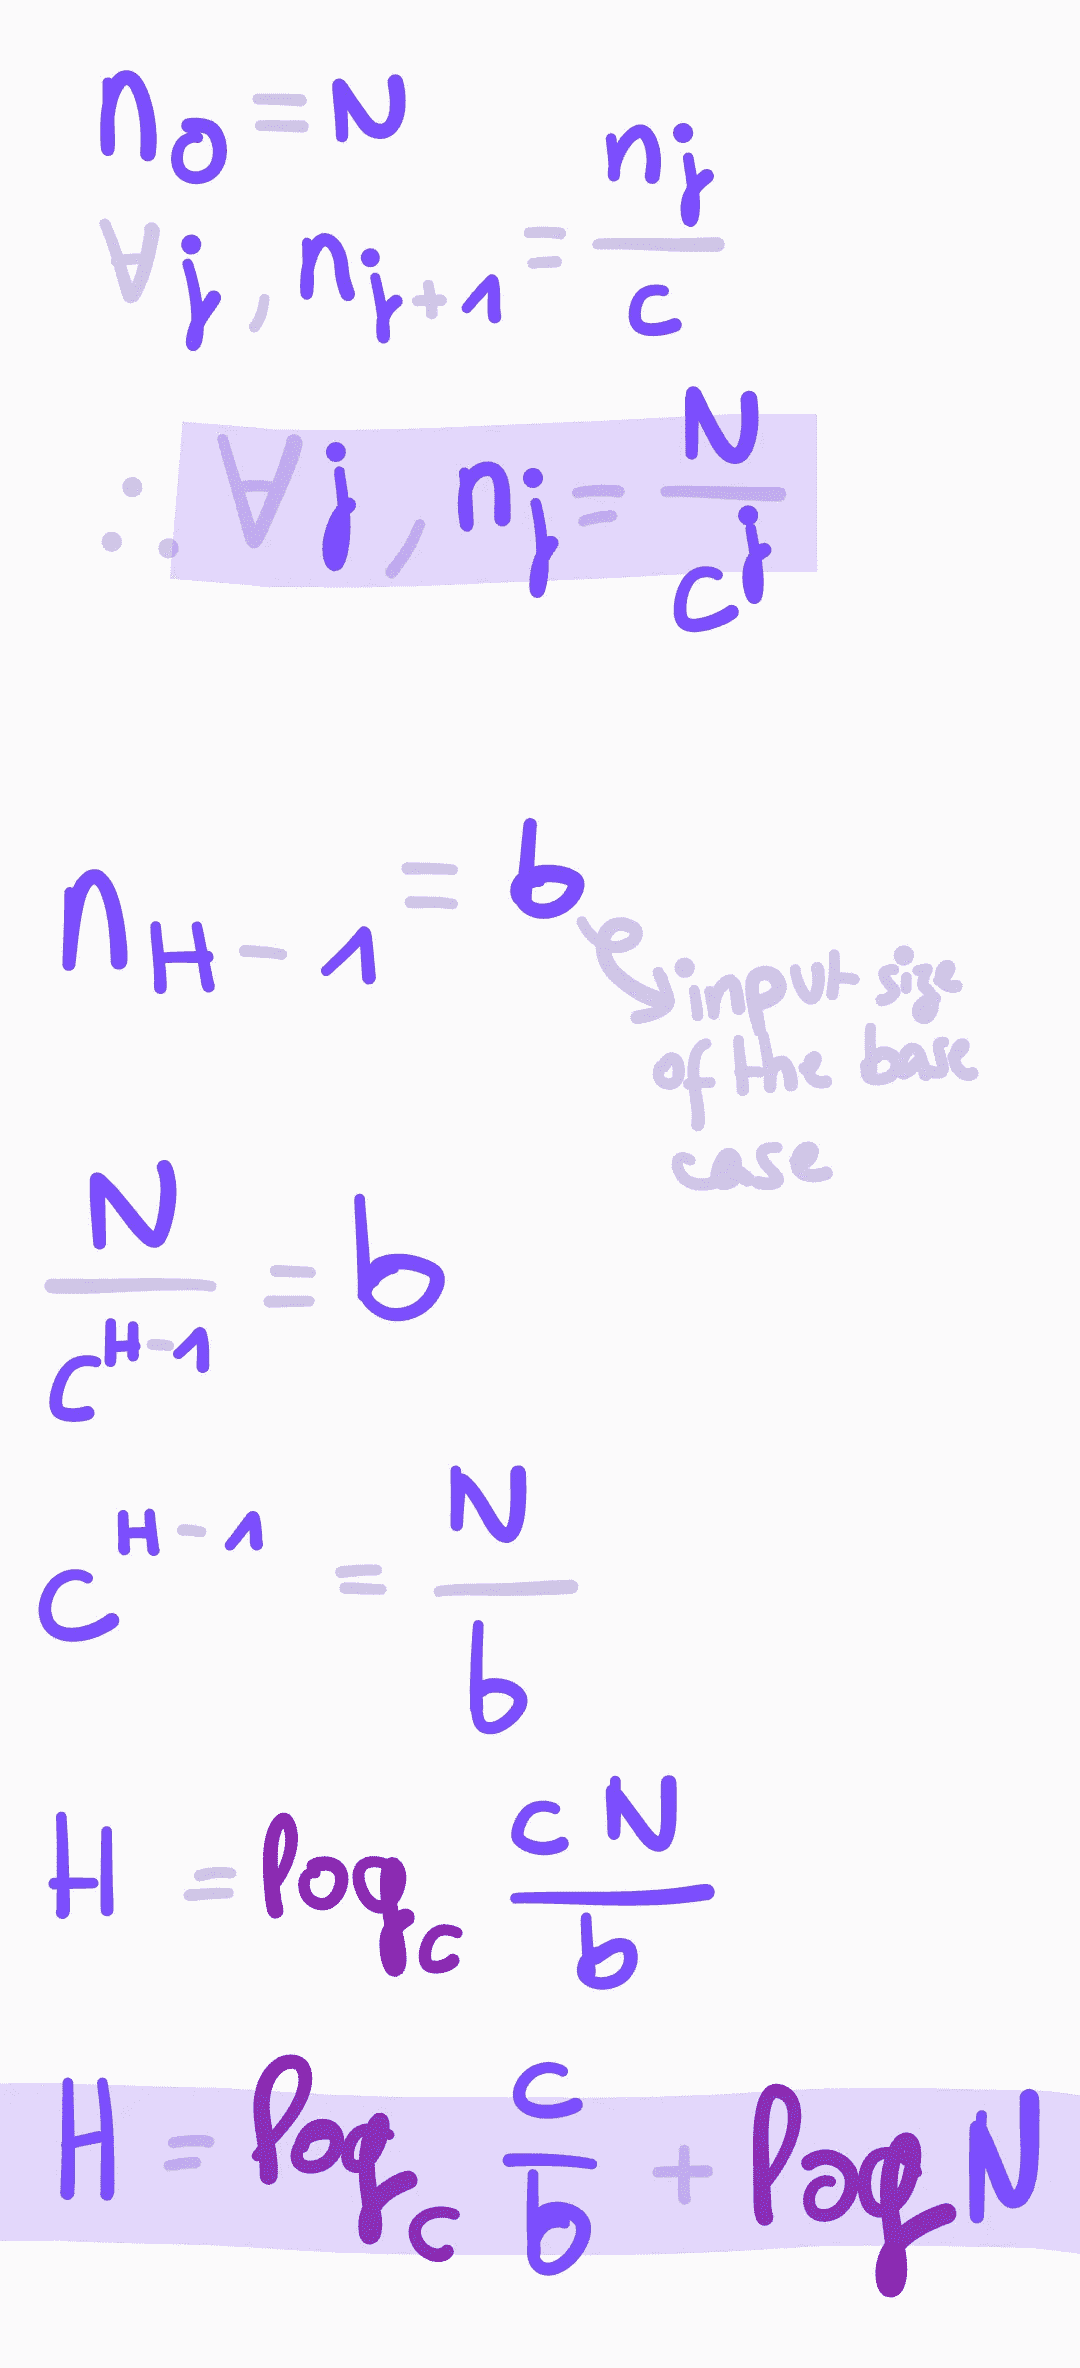 n₀ = N
∀j, nⱼ₊₁ = nⱼ / c
∴ ∀j, nⱼ = N / cʲ
n_{H-1} = b
input size
of the base
case
N / c^{H-1} = b
c^{H-1} = N / b
H = log_c cN / b
H = log_c c / b + log N